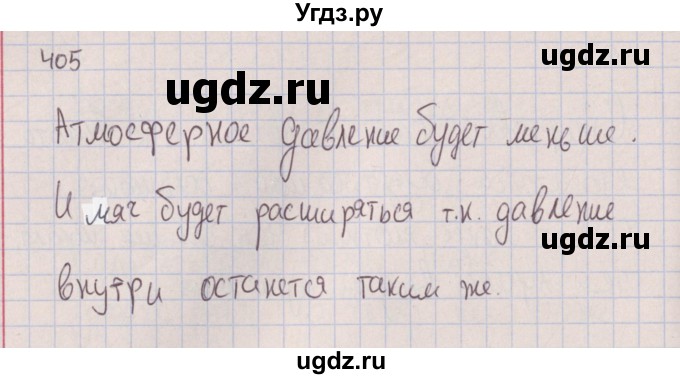 Угдз.ру
405
ugdz.ru
Атмосферное давление будет меньше.
И мяч будет расширяться т.к. давление
ugdz.ru
внутри останется таким же.
ugdz.ru